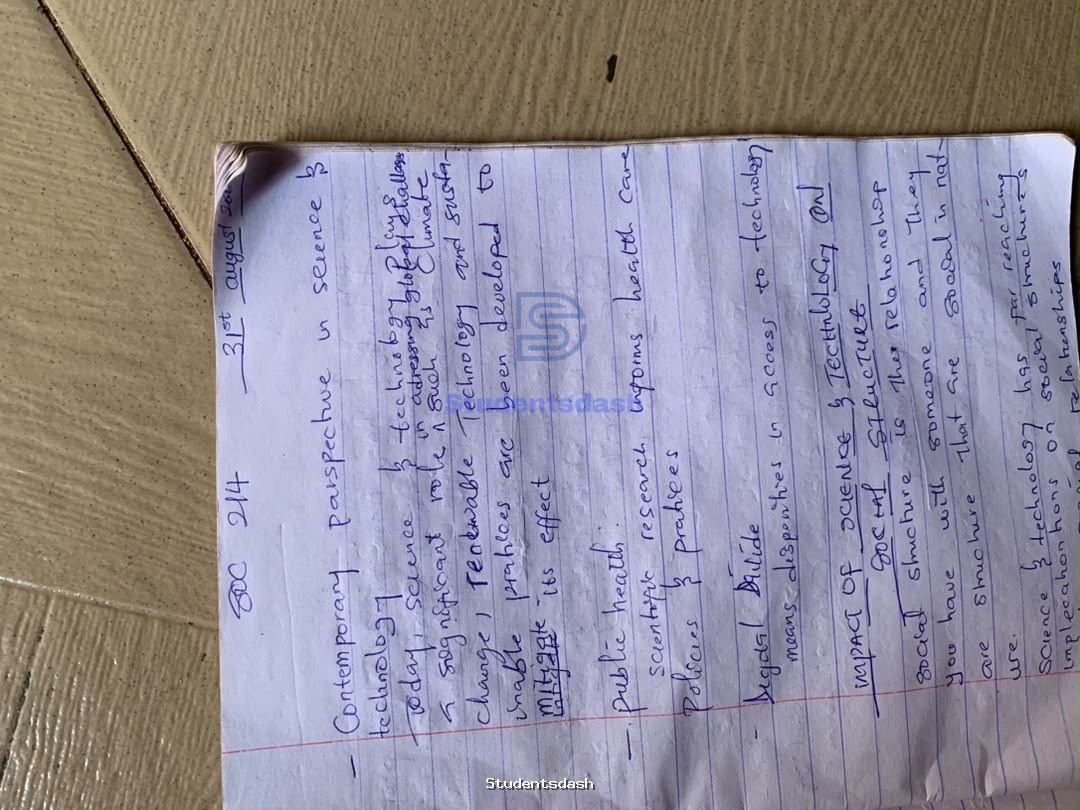 SOC 214
31st august
- Contemporary parspective in science &
technology
Today, science & technology plays
a significant role in adressing global challages
such as Climate
change, renewable Technology and susta-
inable pratices are been developed to
mitigate its effect
- public health:
scientific research informs health care
Policies & pratices
- Digital Divide
means disparities in access to technology
IMPACT OF SCIENCE & TECTHNOLOGY ON
SOCIAL STRUCTURE
social structure is the relationship
you have with someone and they
are structure that are social in nat-
ure.
Science & technology has far reaching
implecations on social structures
relationships
Studentsdash
Studentsdash